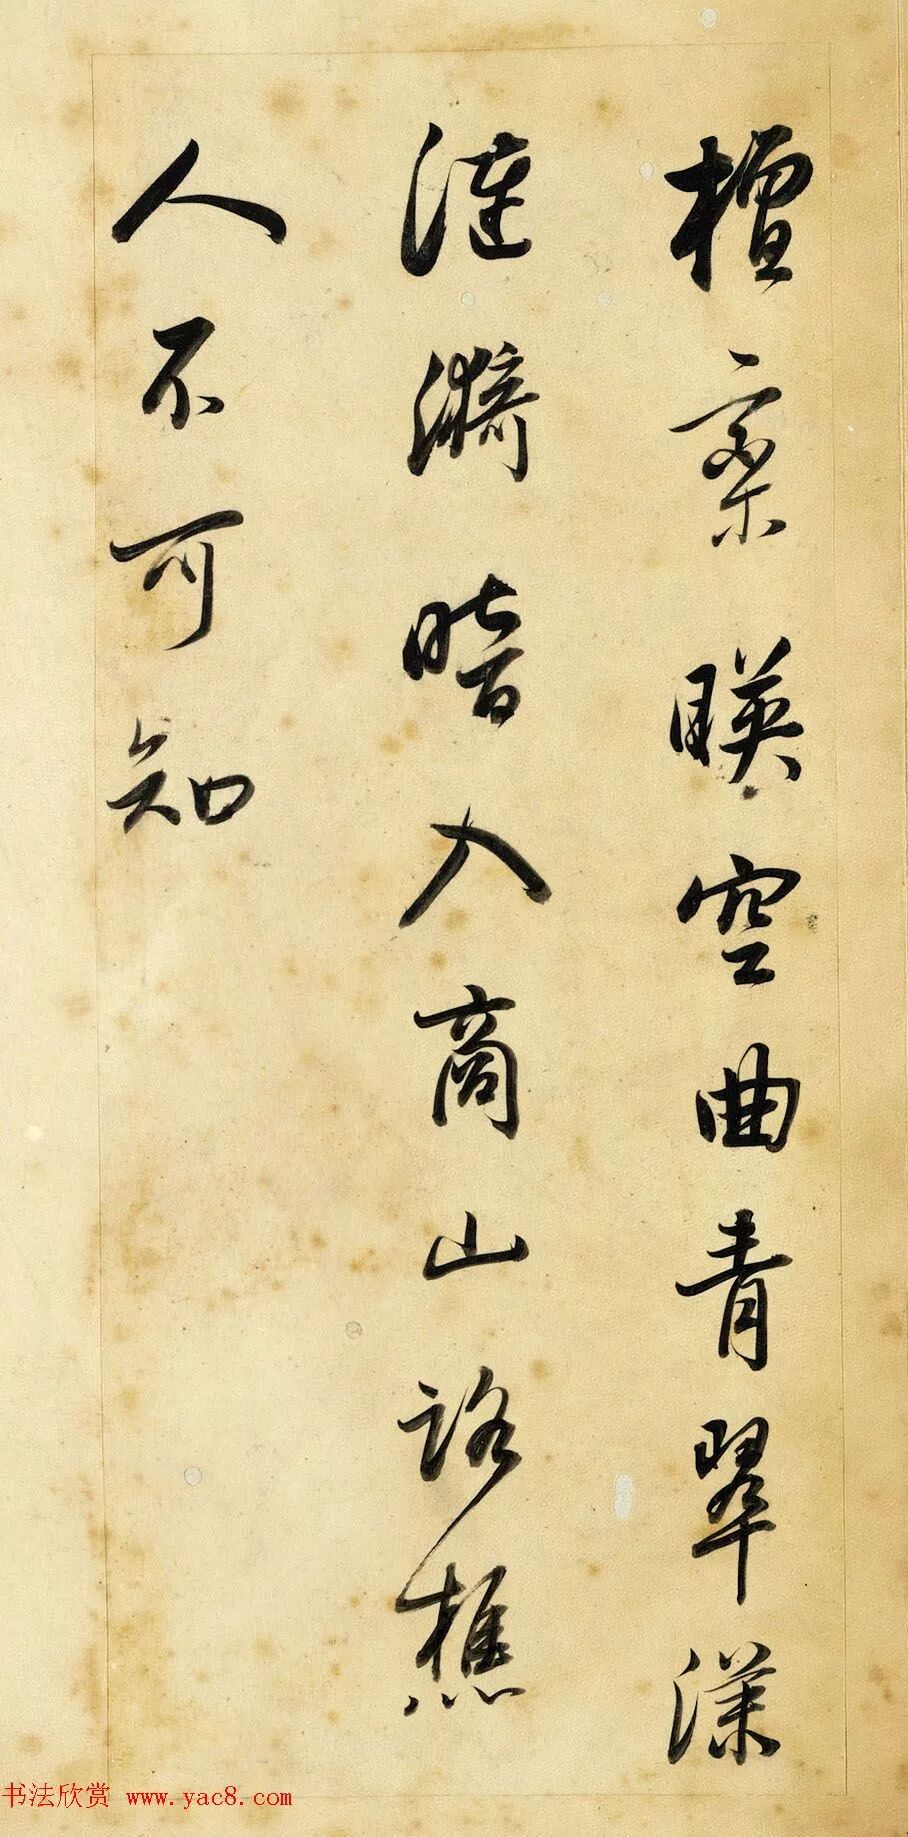 檀欒暎空曲青翠漾
漣漪暗入商山路樵
人不可知
书法欣赏 www.yac8.com